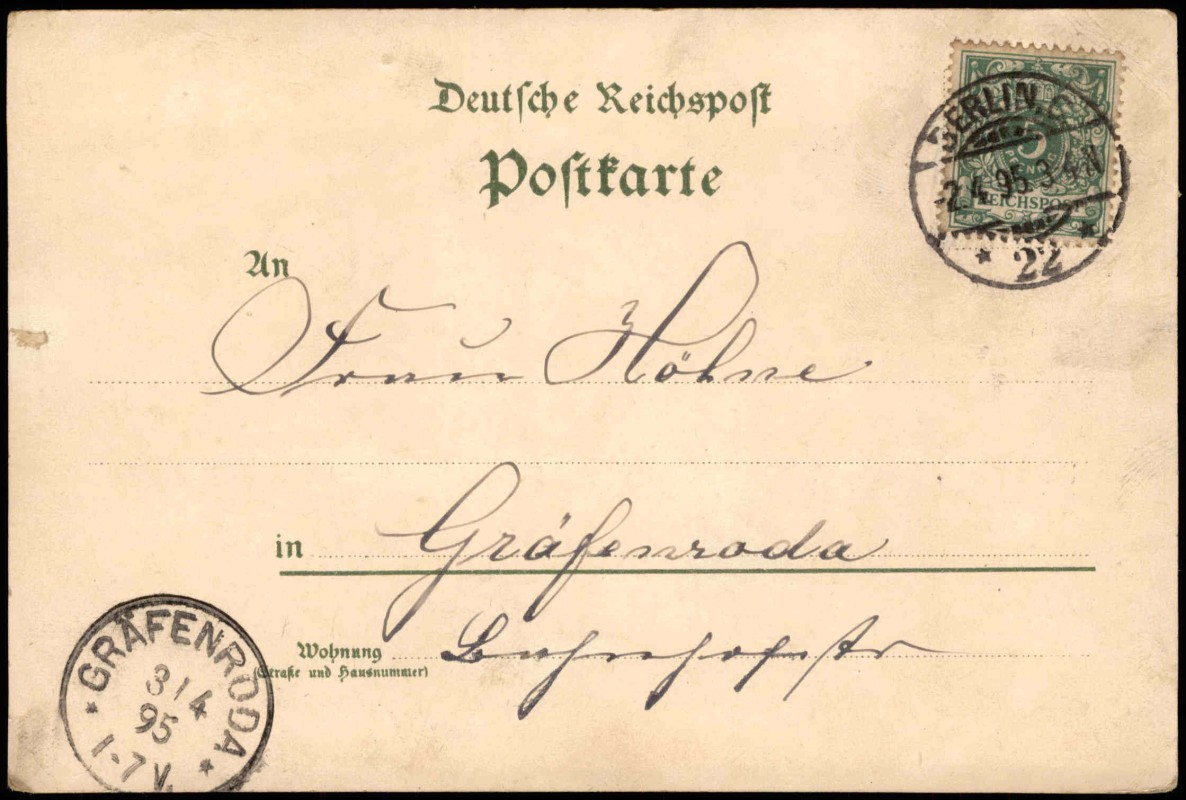 Deutsche Reichspost
Postkarte
BERLIN. C.
2.4.95.3-4N
* 22 *
5
PFENNIG
REICHSPOST
An
Frau Höhne
in Gräfenroda
Wohnung Bahnhofstr
(Straße und Hausnummer)
* GRÄFENRODA *
3/4
95
1-7V.